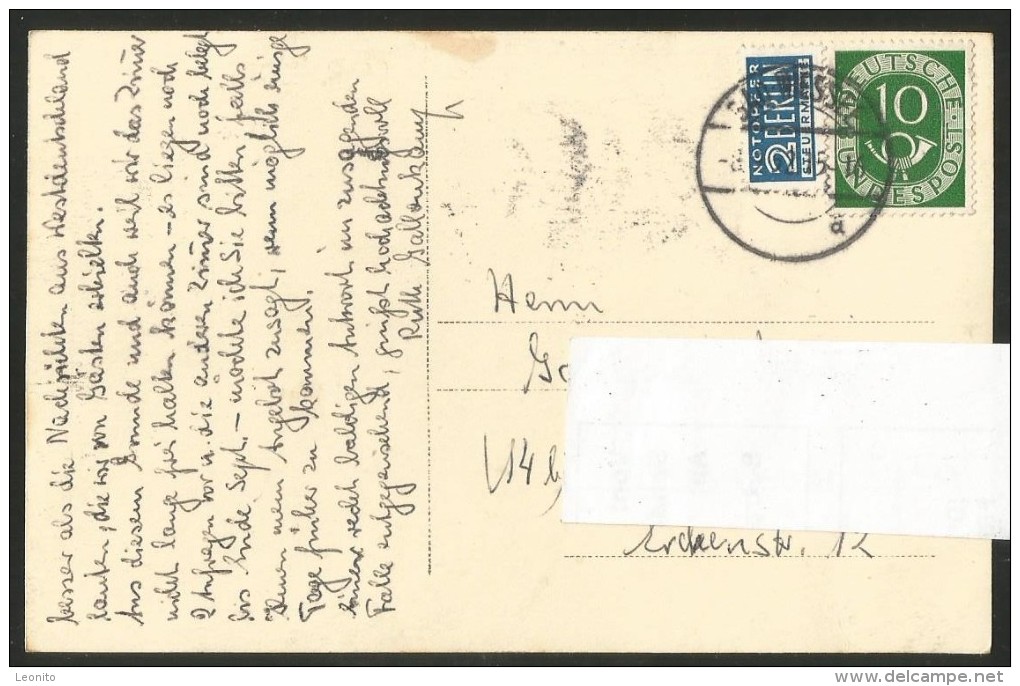 besser als die Nachrichten aus Westdeutschland
lauten, die wir von Gästen erhielten.
Aus diesem Grunde und auch weil wir das Zimmer
nicht lange frei halten können – es liegen noch
2 Anfragen vor u. die anderen Zimmer sind noch belegt
bis Ende Sept. – möchte ich Sie bitten, falls
Ihnen mein Angebot zusagt, wenn möglich einige
Tage früher zu kommen.
Einer recht baldigen Antwort im zusagenden
Falle entgegensehend, grüßt hochachtungsvoll
Ruth
NOTOPFER
2 BERLIN
STEUERMARKE
DEUTSCHE
BUNDESPOST
10
a
Herrn
(14 b)
12
Leonito
www.delcampe.net